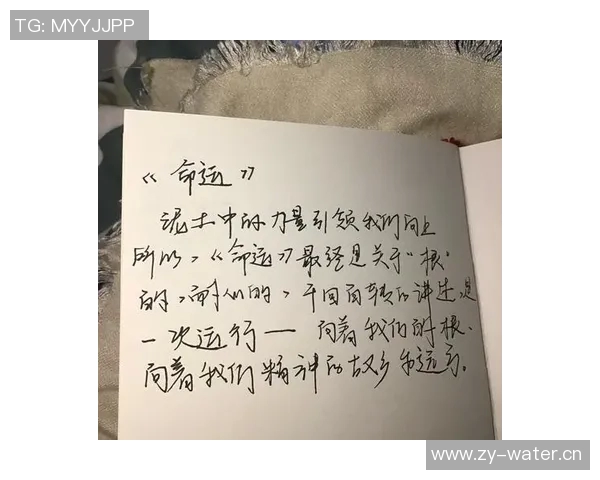 TG: MYYJJPP
《命运》
泥土中的力量引领我们向上
所以,《命运》最终是关于“根”
的,耐人的,千回百转的讲述,是
一次运行— 向着我们的根、
向着我们精神的故乡和远方。
www.zy-water.cn